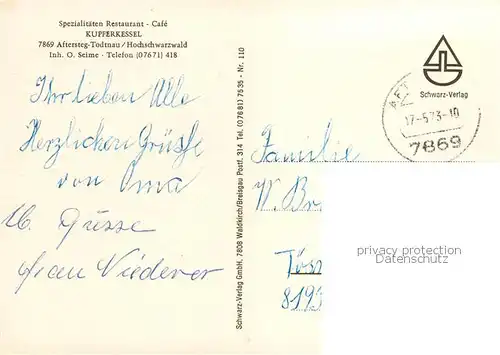 Spezialitäten Restaurant - Café
KUPFERKESSEL
7869 Aftersteg-Todtnau/Hochschwarzwald
Inh. O. Seime · Telefon (07671) 418
Ihr lieben Alle
Herzlichen Grüsse
von Oma
Grüsse
Frau Niederer
Schwarz-Verlag GmbH, 7808 Waldkirch/Breisgau Postf. 314 Tel. (07681) 7535 - Nr. 110
Schwarz-Verlag
17-5.73-10
7869
Familie
W. Br
Töss
819
privacy protection
© oldthing.com